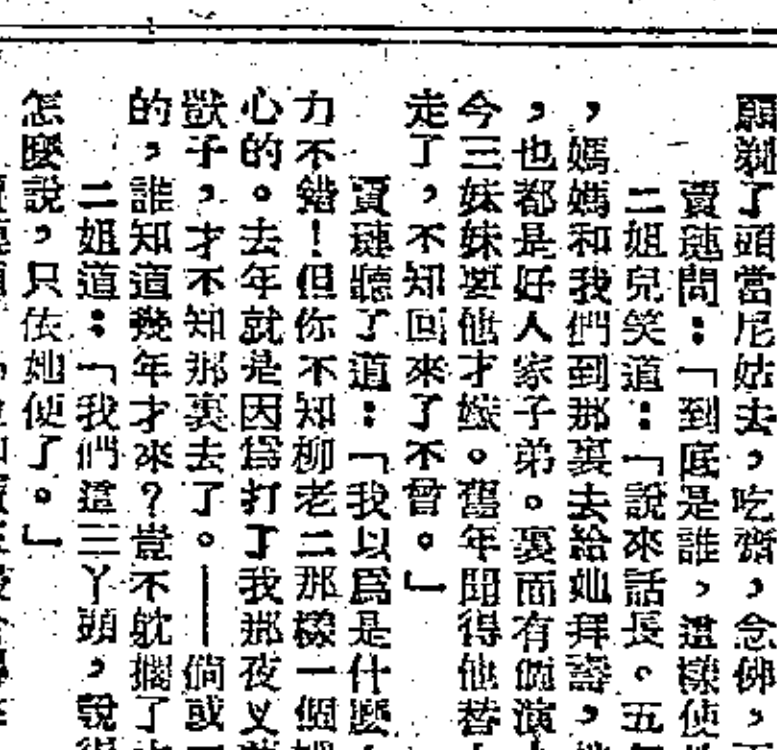 願剃了頭當尼姑去，吃齋，念佛，
賈璉問：「到底是誰，這樣使
二姐兒笑道：「說來話長。五
，媽媽和我們到那裏去給她拜壽，
，也都是好人家子弟。裏面有個演
今三妹妹要他才嫁。舊年聞得他替
走了，不知回來了不曾。」
賈璉聽了道：「我以爲是什麼
力不錯！但你不知柳老二那樣一個
心的。去年就是因爲打了我那夜叉
獃子，才不知那裏去了。——倘或
的，誰知道幾年才來？豈不躭擱了
二姐道：「我們這三丫頭，說
怎麼說，只依她便了。」